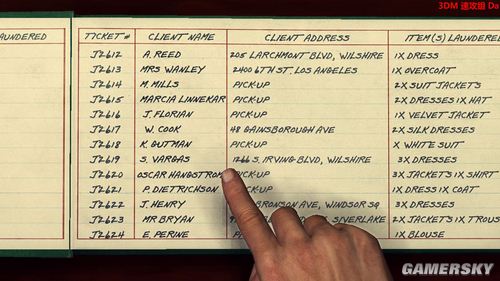 3DM 速攻组 Da
LAUNDERED TICKET# CLIENT NAME CLIENT ADDRESS ITEM(S) LAUNDERED
J2612 A. REED 205 LARCHMONT BLVD, WILSHIRE 1X DRESS
J2613 MRS WANLEY 2400 6TH ST. LOS ANGELES 1X OVERCOAT
J2614 M. MILLS PICK-UP 2X SUIT JACKETS
J2615 MARCIA LINNEKAR PICK-UP 2X DRESSES 1X HAT
J2616 J. FLORIAN PICK-UP 1X VELVET JACKET
J2617 W. COOK 48 GAINSBOROUGH AVE 2X SILK DRESSES
J2618 K. GUTMAN PICK-UP X WHITE SUIT
J2619 S. VARGAS 1266 S. IRVING BLVD, WILSHIRE 3X DRESSES
J2620 OSCAR HANGSTROM PICK-UP 3X JACKETS 1X SHIRT
J2621 P. DIETRICHSON PICK-UP 1X DRESS 1X COAT
J2622 J. HENRY BRONSON AVE, WINDSOR SQ 3X DRESSES
J2623 MR BRYAN S, SILVERLAKE 2X JACKETS 1X TROUS
J2624 E. PERINE 1X BLOUSE
GAMERSKY